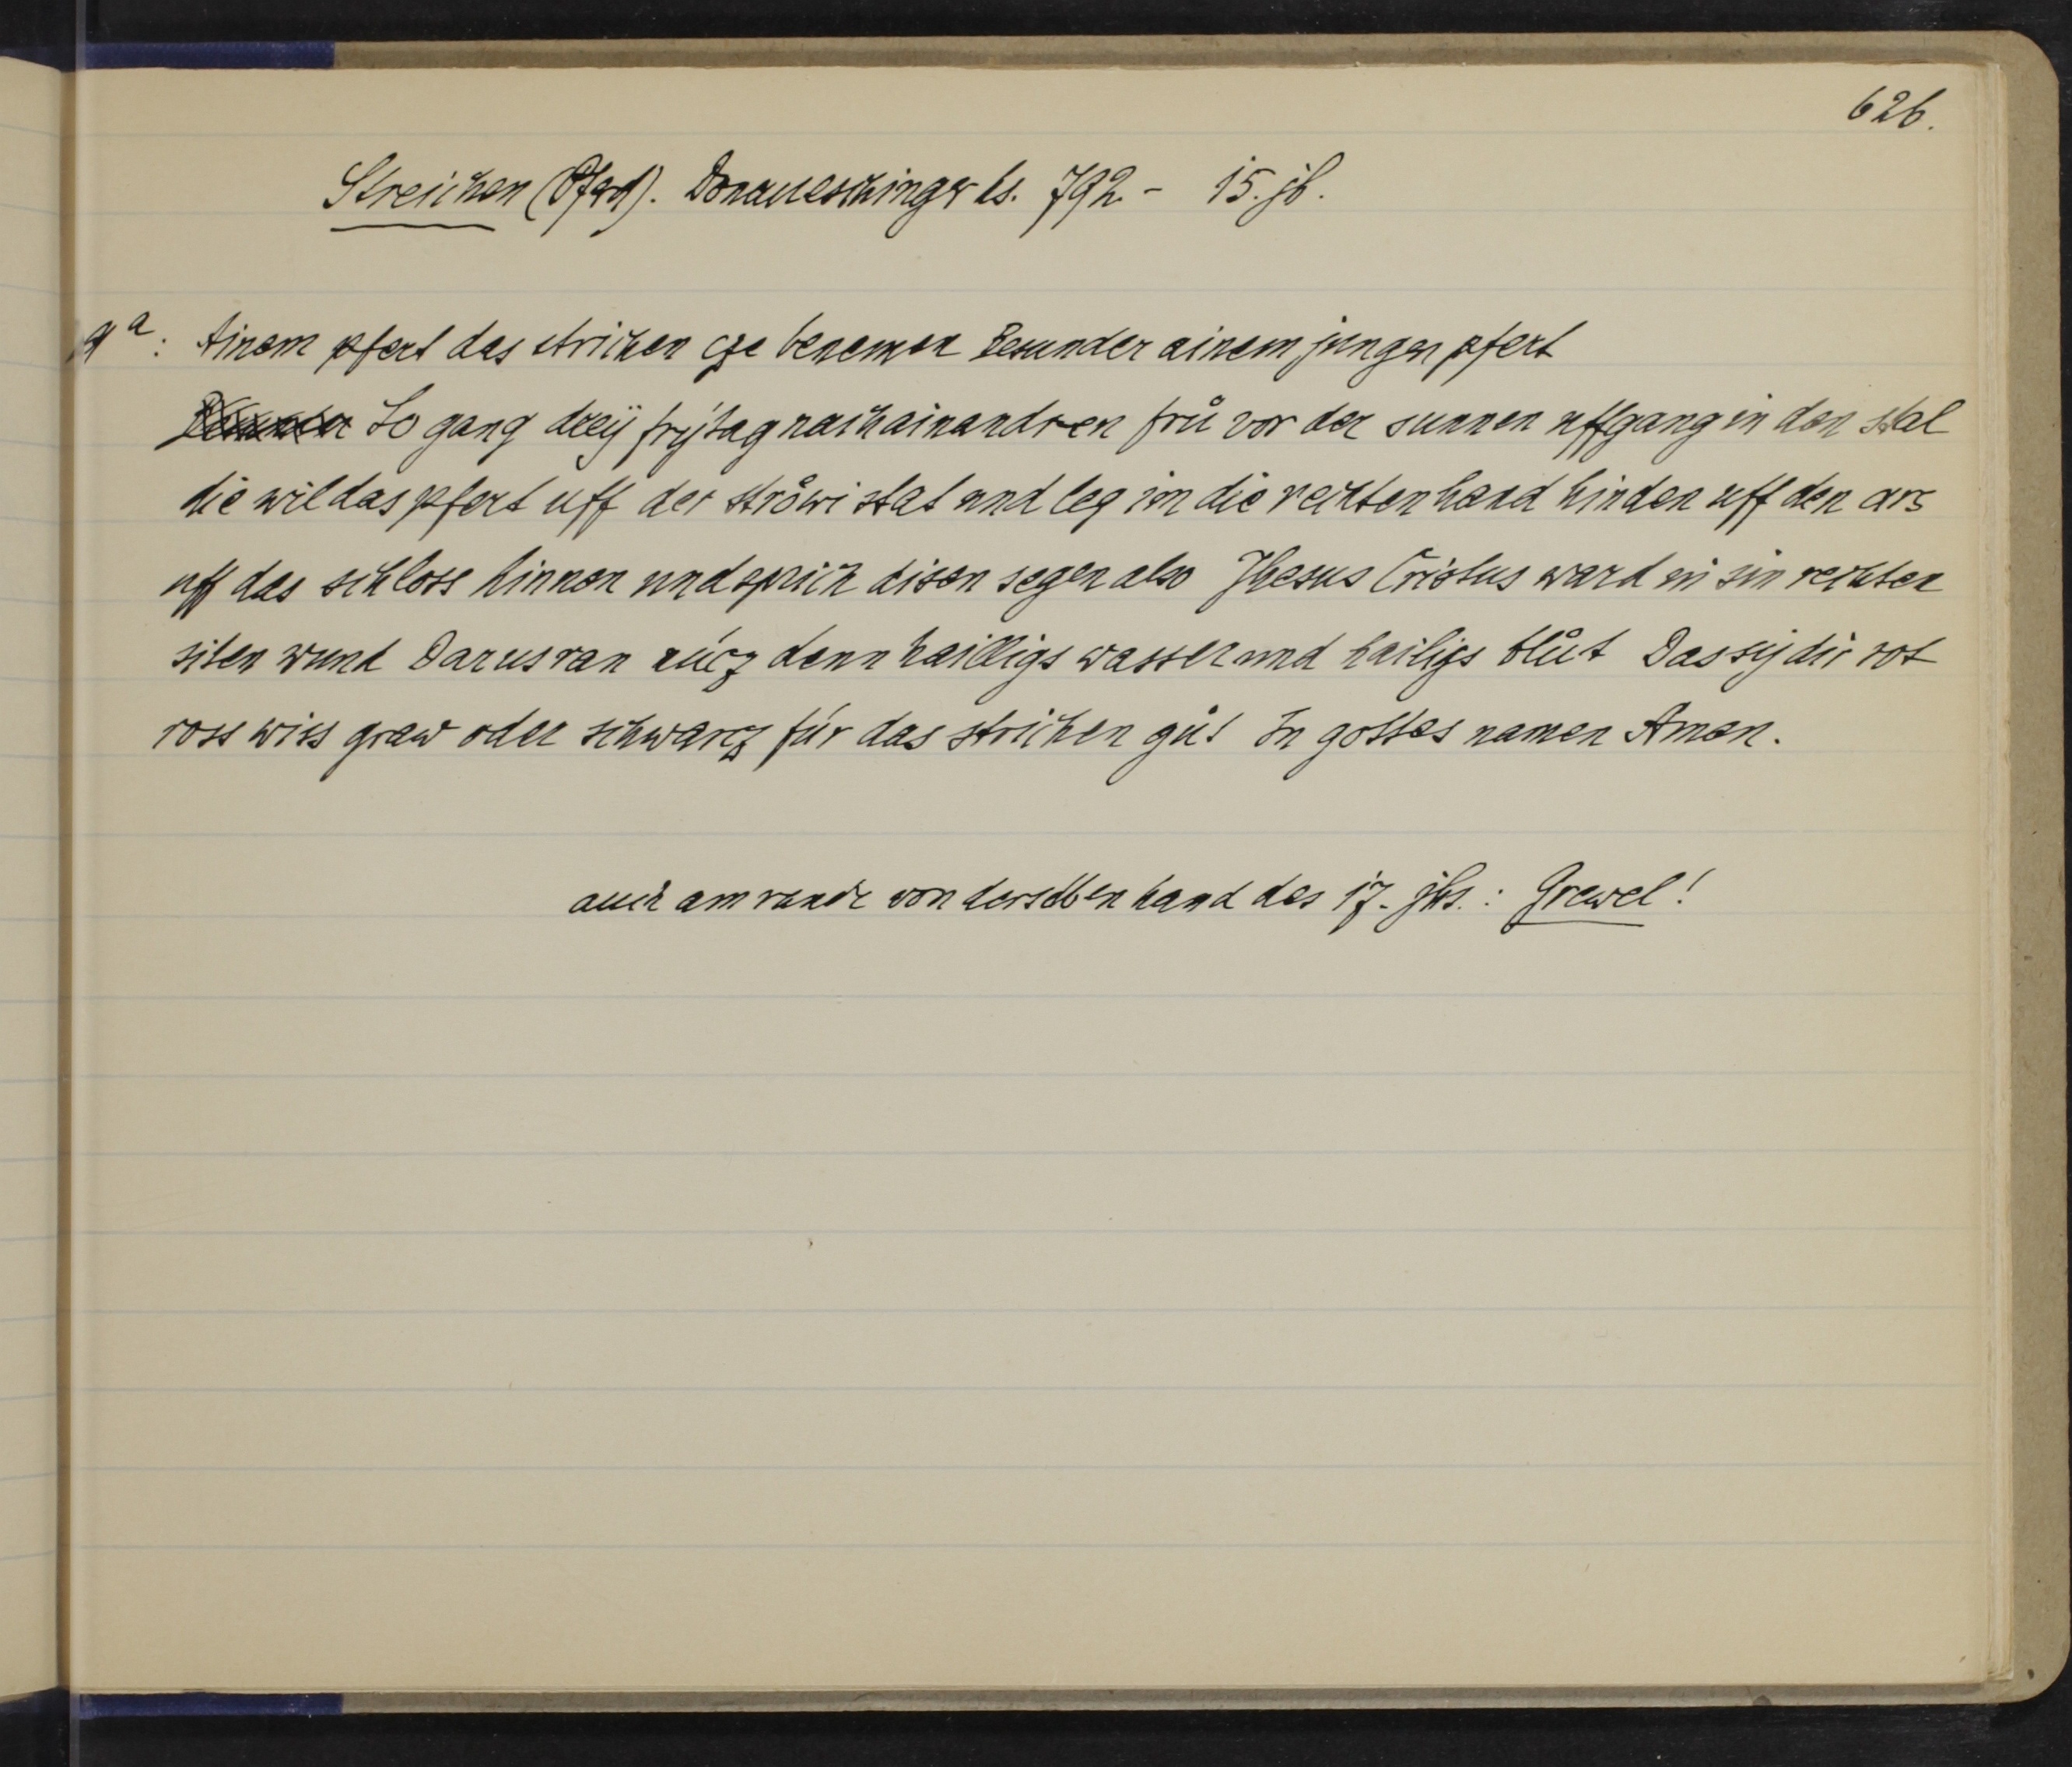 626.
Streichen (Pferd). Donaueschinger hs. 792 - 15. jh.
9ª: Ainem pfert das strichen cze benemen besunder ainem jungen pfert
So gang dreÿ frÿtag nach ainandren frů vor der sunnen uffgang in den stal
die wil das pfert uff der ströwi stat und leg im die rechten hand hinden uff den ars
uff das schloss hinnen und sprich disen segen also Jhesus Cristus ward in sin rechten
siten wund Darus ran nücz denn hailligs wasser und hailigs blůt Das sÿ dir rot
ross wiss graw oder schwarcz für das strichen gůt In gottes namen Amen.
auch am rande von derselben hand des 17. jhs.: Grewel!